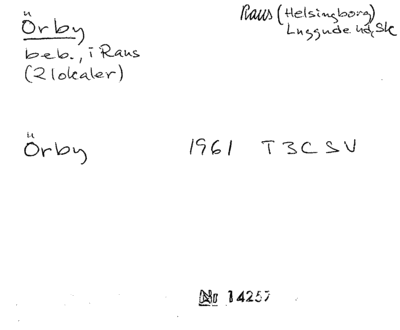 Örby
beb., i Raus
(2 lokaler)
Raus (Helsingborg)
Luggude hd, Sk
Örby 1961 T3CSV
Nr 14257